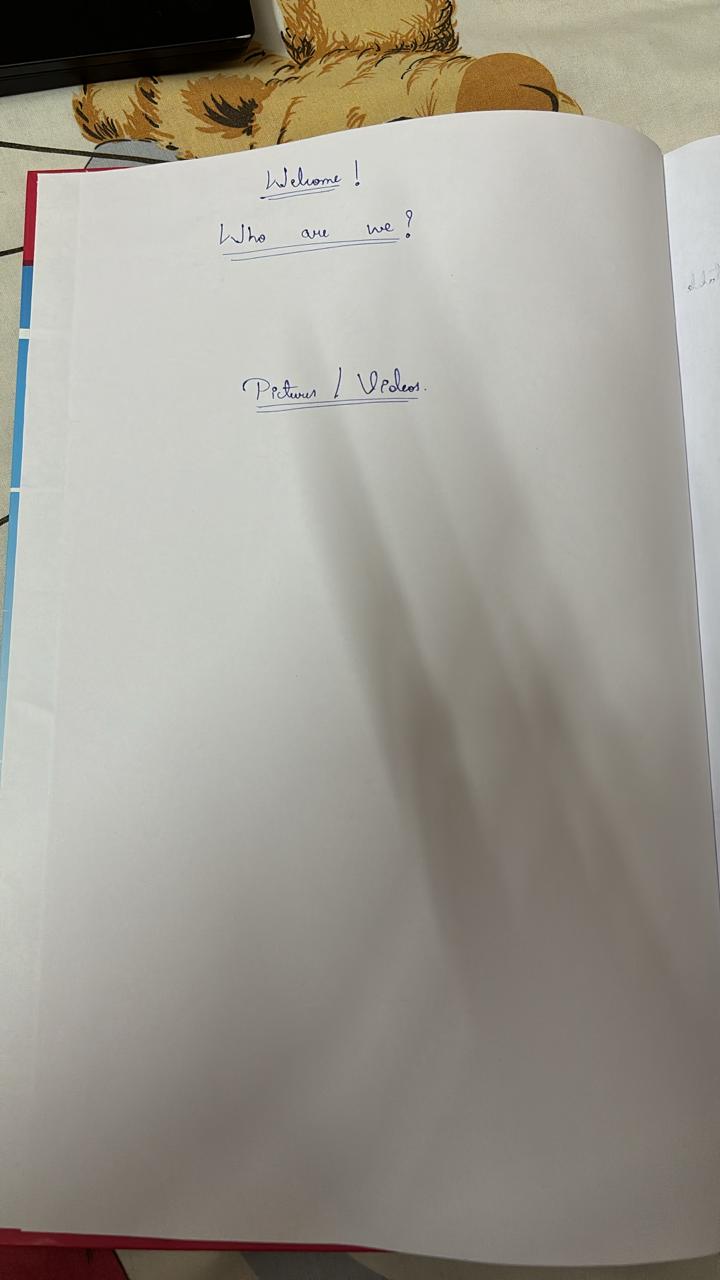 Welcome !
Who are we ?
Pictures / Videos.